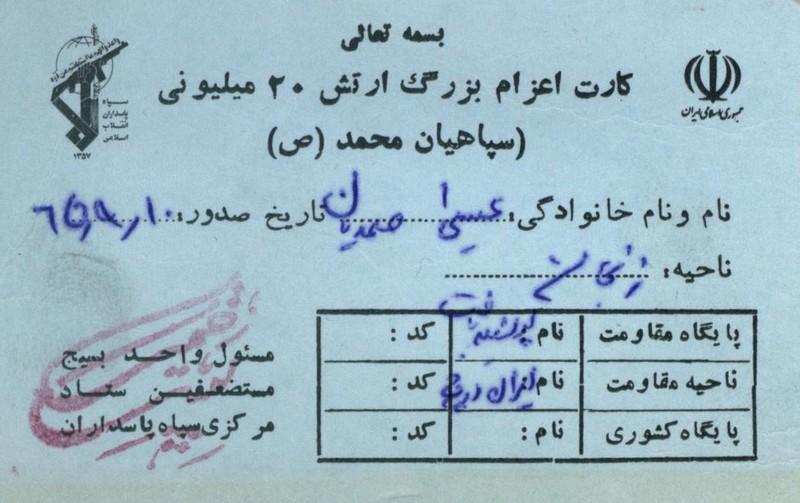 بسمه تعالی
کارت اعزام بزرگ ارتش ۲۰ میلیونی
(سپاهیان محمد (ص)
جمهوری اسلامی ایران
سپاه
پاسداران
انقلاب
اسلامی
۱۳۵۷
نام و نام خانوادگی: عیسی صمدیان تاریخ صدور: ۶۵,۹,۱۰
ناحیه: زنجان
پایگاه مقاومت نام کد:
ناحیه مقاومت نام: کد:
پایگاه کشوری نام: کد:
مسئول واحد بسیج
مستضعفین ستاد
مرکزی سپاه پاسداران